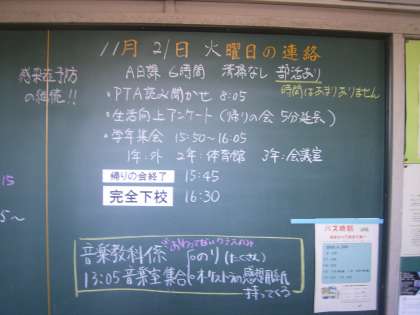 11月21日 火曜日の連絡
感染症予防
の継続!!
A日課 6時間 清掃なし 部活あり
時間はあまりありません
・PTA読み聞かせ 8:05
・生活向上アンケート(帰りの会 5分延長)
・学年集会 15:50〜16:05
1年:外 2年:体育館 3年:会議室
帰りの会終了 15:45
完全下校 16:30
15
5〜
おわってないクラスのみ
音楽教科係 ○のり(たくさん)
13:05音楽室集合 ○オーケストラの感想用紙
持ってくる
バス時刻